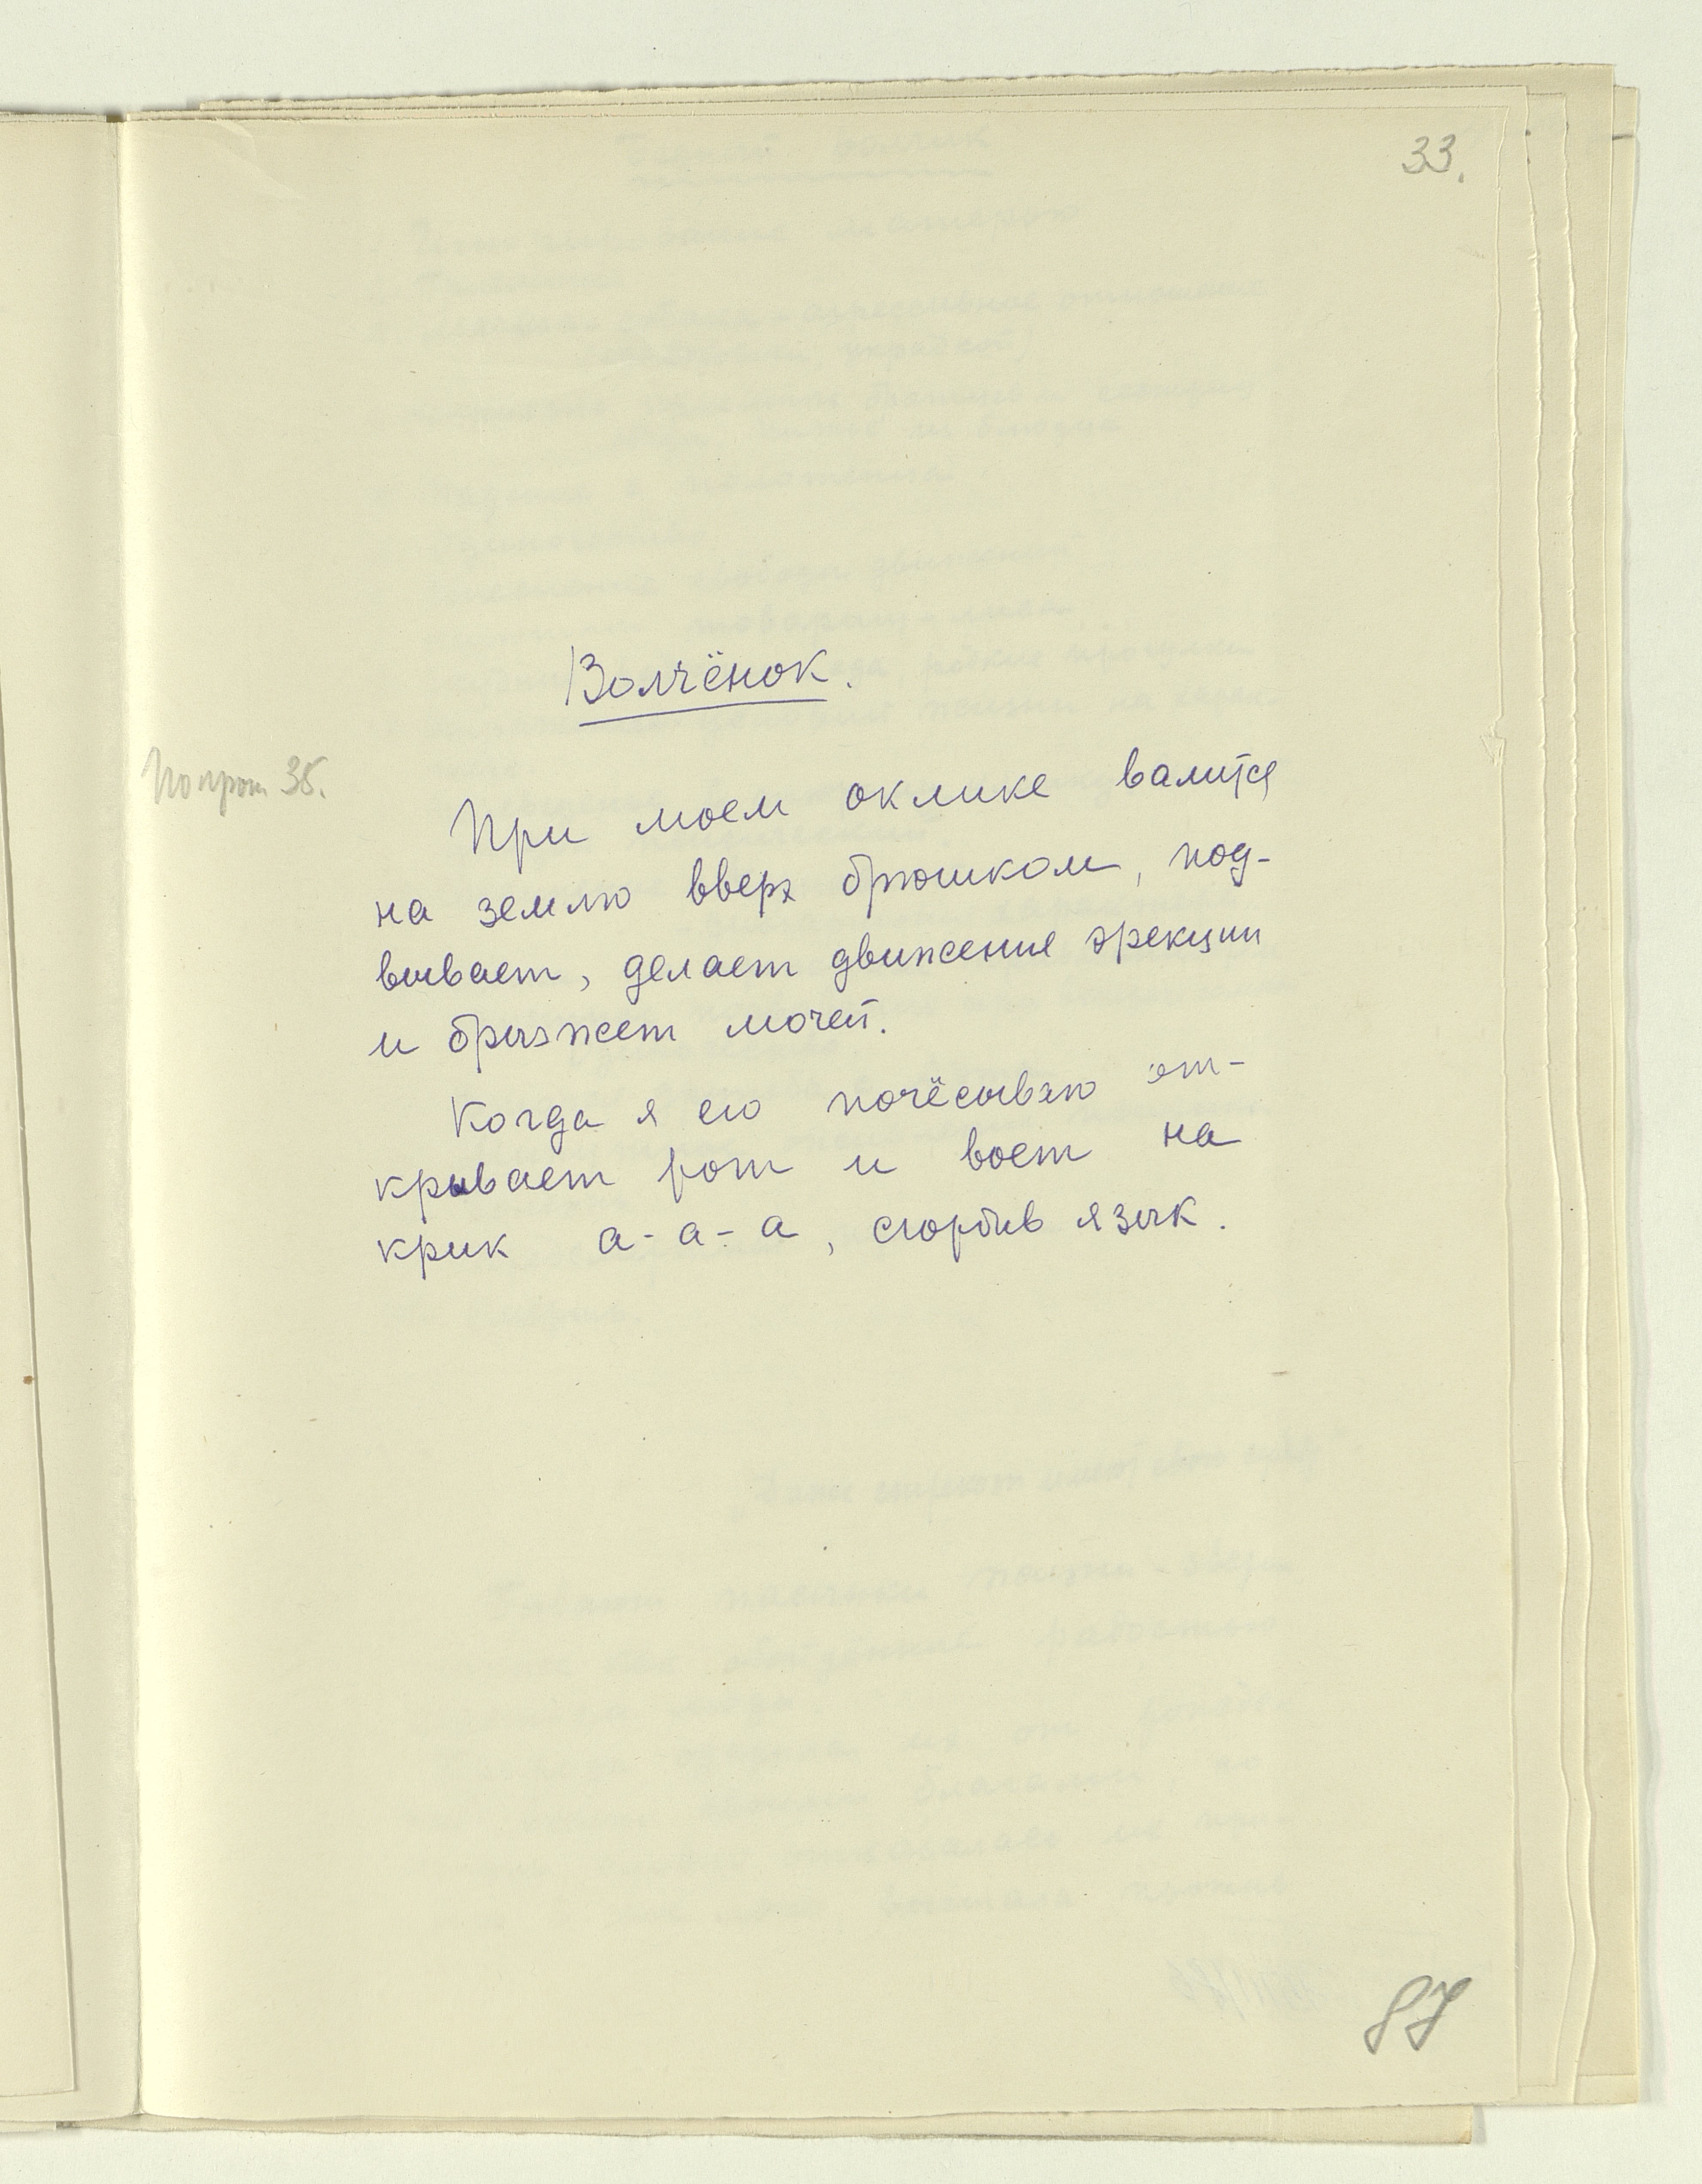 33.
Волчёнок.
35.
При моем оклике валится
на землю вверх брюшком, под-
вывает, делает движение эрекции
и брызжет мочей.
Когда я его почёсываю от-
крывает рот и воет на
крик а-а-а, сгорбив язык.
87